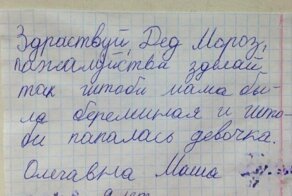 Здраствуй, Дед Мороз,
пажалуйства зделай
так штоби мама бы-
ла беременая и што-
би папалась девочка.
Олегавна Маша
9 лет